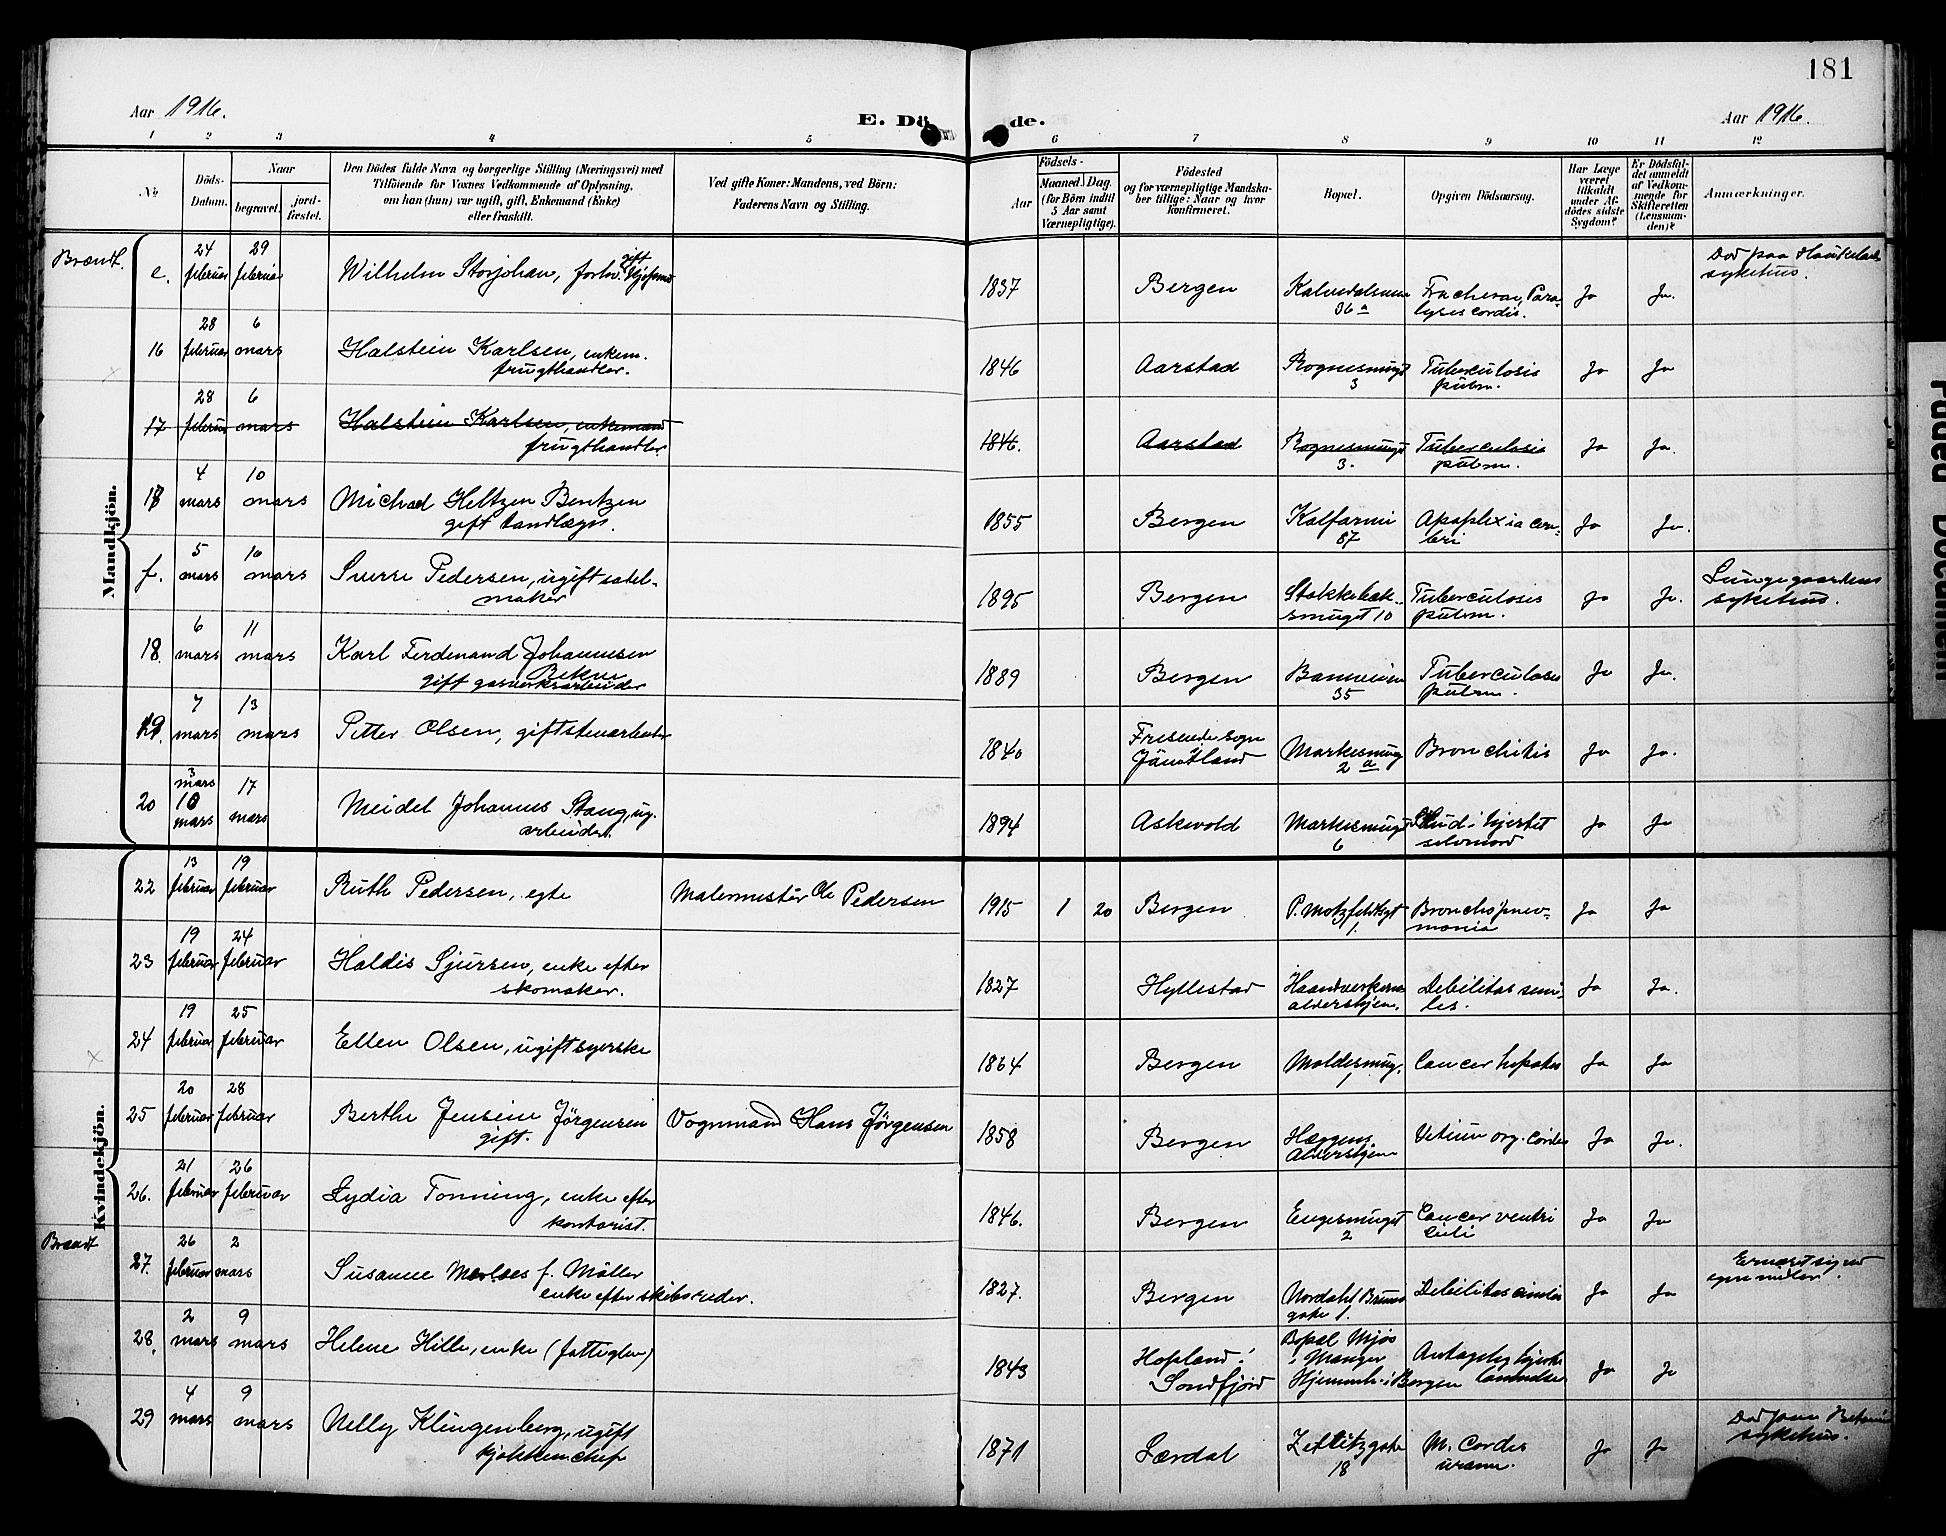 181
Aar 1916.
E. Dö de.
Aar 1916.
1 2 3 4 5 6 7 8 9 10 11 12
No.
Döds-Datum.
Naar
begravet.
jord-fæstet.
Den Dödes fulde Navn og borgerlige Stilling (Næringsvei) med
Tilföiende for Voxnes Vedkommende af Oplysning,
om han (hun) var ugift, gift, Enkemand (Enke)
eller fraskilt.
Ved gifte Koner: Mandens, ved Börn:
Faderens Navn og Stilling.
Födsels-
Aar
Maaned. Dag.
(for Börn indtil
5 Aar samt
Værnepligtige).
Födested
og for værnepligtige Mandska-
ber tillige: Naar og hvor
konfirmeret.
Bopæl.
Opgiven Dödsaarsag.
Har Læge
været
tilkaldt
under Af-
dödes sidste
Sygdom?
Er Dödsfal-
det anmeldt
af Vedkom-
mende for
Skifteretten
(Lensman-
den)?
Anmærkninger.
Mandkjön.
Brændt. e. 24 februar 29 februar Wilhelm Storjohan, forhv. gift 1837 Bergen 36 a Paralysis cordis. Ja Ja. Död paa Haukelands sykehus.
16 28 februar 6 mars Halstein Karlsen, enkem. frugthandler. 1846 Aarstad Rognesmuget 3 Tuberculosis pulm. Ja Ja
17 28 februar 6 mars Halstein Karlsen, enkemand frugthandler 1846. Aarstad Rognesmuget 3. Tuberculosis pulm. Ja Ja.
18 4 mars 10 mars Michael Heltzen Bentzen gift tandlæge. 1855 Bergen Kalfarvei 87 Apoplexia cerebri Ja Ja.
f. 5 mars 10 mars Sverre Pedersen, ugift salmaker 1895 Bergen Stokkebæksmuget 10 Tuberculosis pulm. Ja Ja. Lungegaardens sykehus.
18. 6 mars 11 mars Karl Ferdinand Johannesen gift gasverksarbeider 1889 Bergen 35 Tuberculosis pulm. Ja Ja.
19. 7 mars 13 mars Petter Olsen, gift stenarbeider 1840 Jämtland Markesmug 2 a Bronchitis Ja Ja.
20 10 mars 17 mars Meidel Johannes Stang, ug. arbeider. 1894 Askvold Markesmuget 6 Skud i hjertet selvmord Ja Ja
Kvindekjön.
22 13 februar 19 februar Ruth Pedersen, egte Malermester Ole Pedersen 1915 1 20 Bergen P. Motzfeldtsgt 1. Bronchopneumonia Ja Ja
23 19 februar 24 februar Haldis Sjursen, enke efter skomaker. 1827 Hyllestad Haandverkernes aldershjem. Debilitas senilis. Ja Ja.
24 19 februar 25 februar Ellen Olsen, ugift syerske 1864 Bergen Moldesmug. 1 Cancer hepatis Ja Ja
25 20 februar 28 februar Berthe Jensine Jörgensen gift. Vognmand Hans Jörgensen 1858 Bergen Aldershjem Vitium org. cordis Ja Ja.
26. 21 februar 26 februar Lydia Tonning, enke efter kontorist. 1846. Bergen Engesmuget 2 Cancer ventriculi Ja Ja
Brændt 27. 26 februar 2 mars Susanne f. Möller enke efter skibsreder. 1827. Bergen Nordahl Bruns gate 1. Debilitas senilis Ja Ja
28. 2 mars 9 mars Helene Hille, enke (fattiglem) 1843 Hopland i Söndfjord Bopæl Mjös i Manger Hjemmh. i Bergen Ja Ja
29 4 mars 9 mars Nelly Klingenberg, ugift kjökkenchef 1871 Lærdal Zetlitzgate 18 M. Cordis Ja Ja Död paa Betanien sykehus.